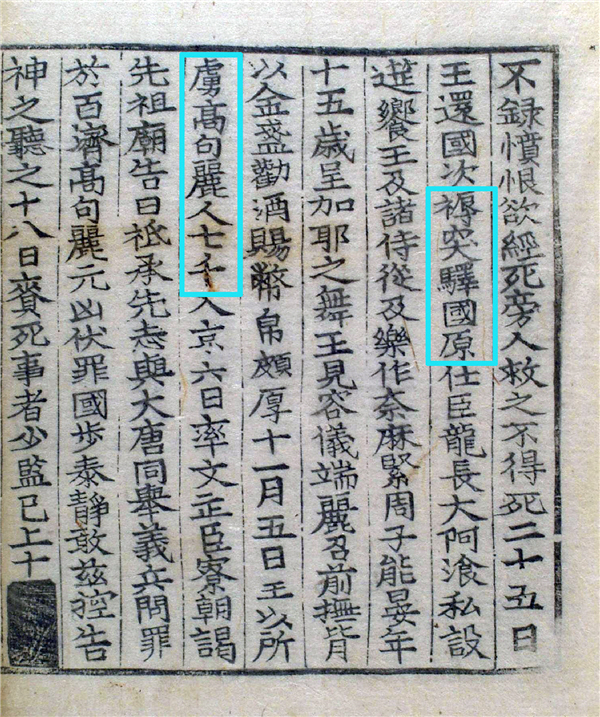 不錄憤恨欲經死旁人救之不得死二十五日
王還國次褥突驛國原仕臣龍長大阿飡私設
筵饗王及諸侍從及樂作奈麻緊周子能晏年
十五歲呈加耶之舞王見容儀端麗召前撫背
以金盞勸酒賜幣帛頗厚十一月五日王以所
虜髙句麗人七千入京六日率文正臣寮朝謁
先祖廟告曰祗承先志與大唐同舉義兵問罪
於百濟髙句麗元凶伏罪國步泰靜敢玆控告
神之聽之十八日賚死事者少監已上十